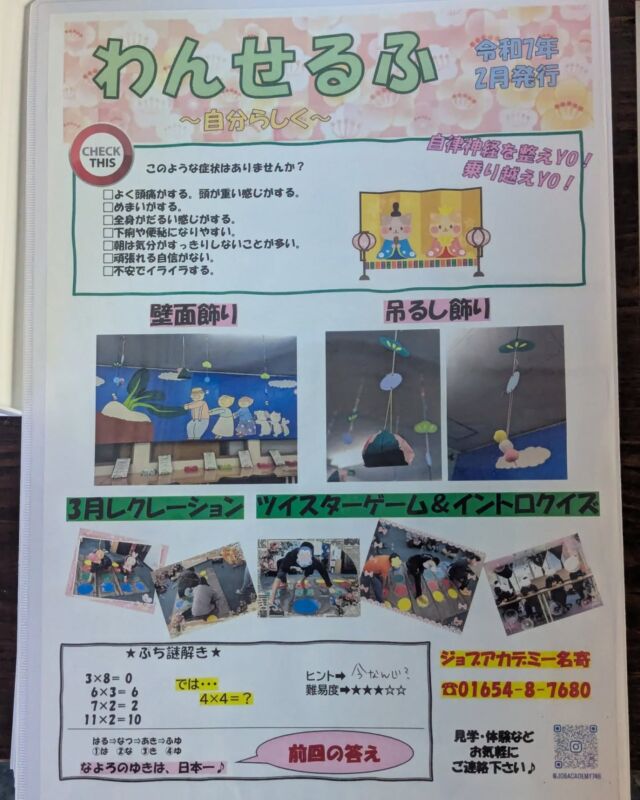 わんせるふ
～自分らしく～
令和7年
2月発行
CHECK
THIS
このような症状はありませんか？
自律神経を整えYO！
乗り越えYO！
□よく頭痛がする。頭が重い感じがする。
□めまいがする。
□全身がだるい感じがする。
□下痢や便秘になりやすい。
□朝は気分がすっきりしないことが多い。
□頑張れる自信がない。
□不安でイライラする。
壁面飾り
吊るし飾り
3月レクレーション ツイスターゲーム＆イントロクイズ
★ぷち謎解き★
3×8＝0
6×3＝6
7×2＝2
11×2＝10
では・・・
4×4＝？
ヒント➡今なんじ？
難易度➡★★★☆☆
はる⇒なつ⇒あき⇒ふゆ
①は ②な ③き ④ゆ
なよろのゆきは、日本一♪
前回の答え
ジョブアカデミー名寄
☎01654-8-7680
見学・体験など
お気軽に
ご連絡下さい♪
@JOBACADEMY746